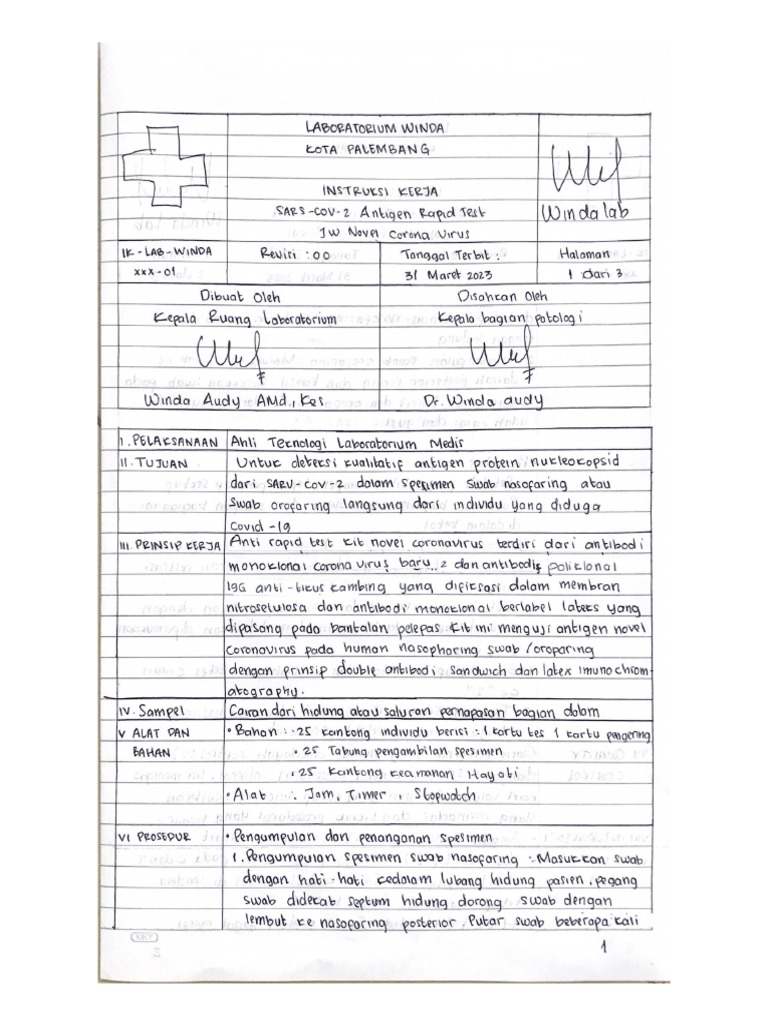 LABORATORIUM WINDA
KOTA PALEMBANG
INSTRUKSI KERJA
SARS-COV-2 Antigen Rapid Test
JW Novel Corona Virus
Winda lab
IK-LAB-WINDA
xxx-01
Revisi : 00
Tanggal Terbit :
31 Maret 2023
Halaman
1 dari 3
Dibuat Oleh
Kepala Ruang Laboratorium
Winda Audy AMd., Kes
Disahkan Oleh
Kepala bagian patologi
Dr. Winda audy
I. PELAKSANAAN Ahli Teknologi Laboratorium Medis
II. TUJUAN Untuk deteksi kualitatif antigen protein nukleokopsid
dari SARV-Cov-2 dalam spesimen swab nasofaring atau
swab orofaring langsung dari individu yang diduga
Covid-19
III. PRINSIP KERJA Anti rapid test kit novel coronavirus terdiri dari antibodi
monoklonal corona virus baru 2 dan antibodif poliklonal
IgG anti-tikus kambing yang difiksasi dalam membran
nitroselulosa dan antibodi monoklonal berlabel lateks yang
dipasang pada bantalan pelepas. Kit ini menguji antigen novel
coronavirus pada human nasopharing swab /oroparing
dengan prinsip double antibodi sandwich dan latex imunochrom
atography.
IV. Sampel Cairan dari hidung atau saluran pernapasan bagian dalam
V ALAT DAN • Bahan : · 25 kantong individu berisi : 1 kartu tes 1 kartu pengering
BAHAN • 25 Tabung pengambilan spesimen
· 25 Kantong keamanan Hayati
• Alat : Jam, Timer, Stopwatch
VI PROSEDUR • Pengumpulan dan penanganan spesimen
1. Pengumpulan spesimen swab nasofaring : Masukkan swab
dengan hati-hati kedalam lubang hidung pasien, pegang
swab didekat septum hidung dorong swab dengan
lembut ke nasofaring posterior. Putar swab beberapa kali
KKY
1